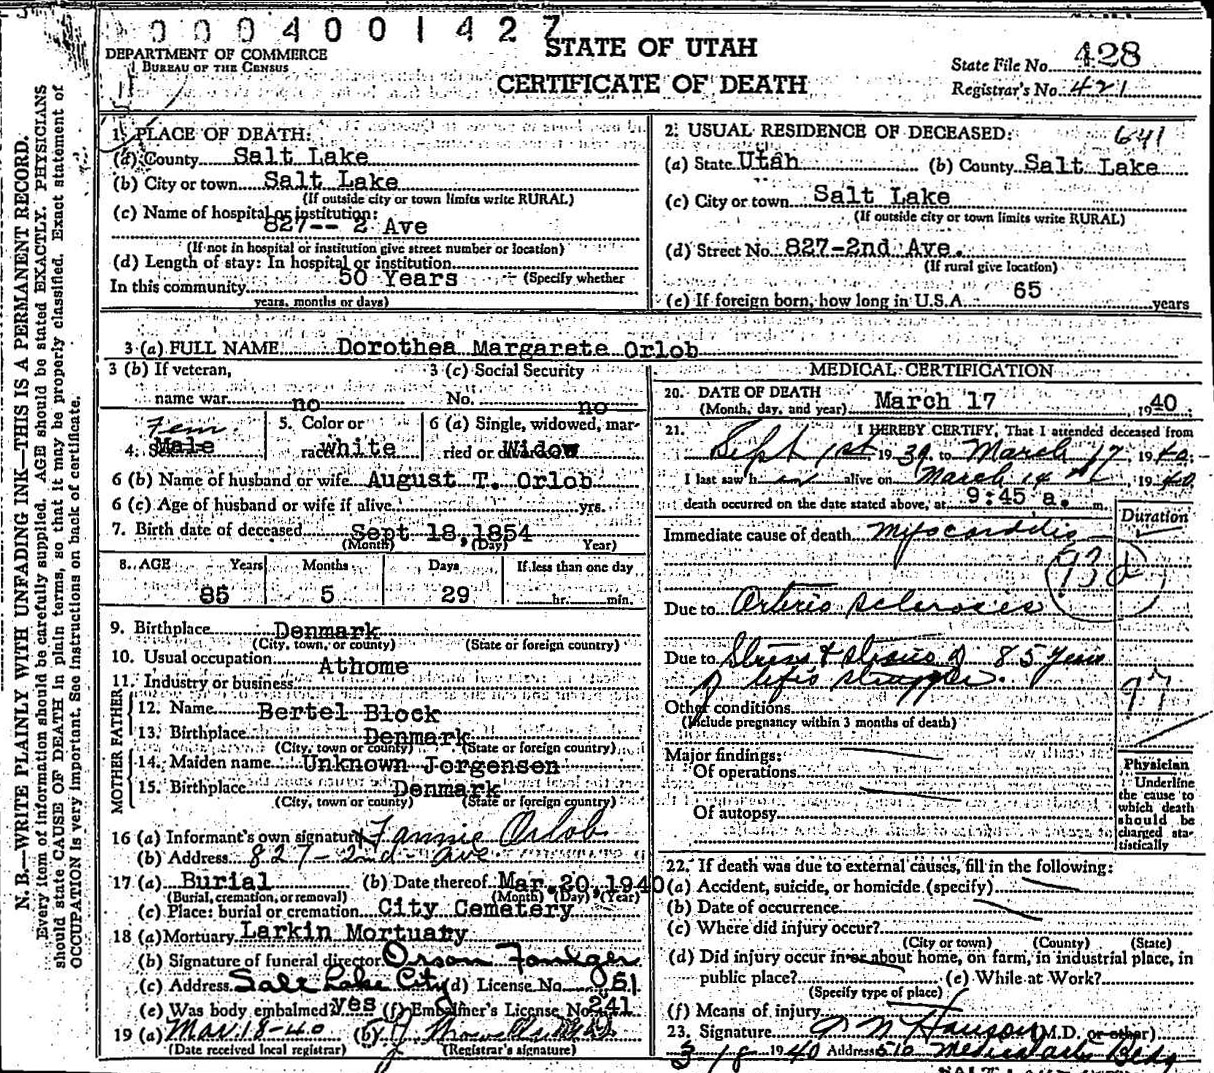 0 0 0 4 0 0 1 4 2 7
DEPARTMENT OF COMMERCE
BUREAU OF THE CENSUS
STATE OF UTAH
CERTIFICATE OF DEATH
State File No. 428
Registrar's No. 421
N. B.—WRITE PLAINLY WITH UNFADING INK—THIS IS A PERMANENT RECORD.
Every item of information should be carefully supplied. AGE should be stated EXACTLY. PHYSICIANS
should state CAUSE OF DEATH in plain terms, so that it may be properly classified. Exact statement of
OCCUPATION is very important. See instructions on back of certificate.
1. PLACE OF DEATH:
(a) County Salt Lake
(b) City or town Salt Lake
(If outside city or town limits write RURAL)
(c) Name of hospital or institution:
827-- 2 Ave
(If not in hospital or institution give street number or location)
(d) Length of stay: In hospital or institution
In this community 50 Years (Specify whether
years, months or days)
2. USUAL RESIDENCE OF DECEASED: 641
(a) State Utah (b) County Salt Lake
(c) City or town Salt Lake
(If outside city or town limits write RURAL)
(d) Street No. 827-2nd Ave.
(If rural give location)
(e) If foreign born, how long in U.S.A. 65 years
3 (a) FULL NAME Dorothea Margarete Orlob
3 (b) If veteran,
name war no
3 (c) Social Security
No. no
Fem.
4. Sex Male
5. Color or
race white
6 (a) Single, widowed, mar-
ried or divorced Widow
6 (b) Name of husband or wife August T. Orlob
6 (c) Age of husband or wife if alive yrs.
7. Birth date of deceased Sept 18, 1854
(Month) (Day) Year)
8. AGE Years Months Days If less than one day
85 5 29 hr. min.
9. Birthplace Denmark
(City, town, or county) (State or foreign country)
10. Usual occupation Athome
11. Industry or business
FATHER
12. Name Bertel Block
13. Birthplace Denmark
(City, town or county) (State or foreign country)
MOTHER
14. Maiden name Unknown Jorgensen
15. Birthplace Denmark
(City, town or county) (State or foreign country)
16 (a) Informant's own signature Fannie Orlob
(b) Address 827-2nd Ave
17 (a) Burial (b) Date thereof Mar. 20, 1940
(Burial, cremation, or removal) (Month) (Day) (Year)
(c) Place: burial or cremation City Cemetery
18 (a) Mortuary Larkin Mortuary
(b) Signature of funeral director Orson
(c) Address Salt Lake City (d) License No. 051
(e) Was body embalmed? yes (f) Embalmer's License No. 241
19 (a) Mar. 18-40 (b)
(Date received local registrar) (Registrar's signature)
MEDICAL CERTIFICATION
20. DATE OF DEATH
(Month, day, and year) March 17, 1940
21. I HEREBY CERTIFY, That I attended deceased from
Sept 1st, 1939, to March 17, 1940;
I last saw h alive on March 14th, 1940
death occurred on the date stated above, at 9:45 a. m.
Duration
Immediate cause of death Myocarditis
93d
Due to Arterio Scleroses
Due to Stress & strains of 85 years
of life's struggle.
97
Other conditions
(Include pregnancy within 3 months of death)
Major findings:
Of operations
Of autopsy
Physician
Underline
the cause to
which death
should be
charged sta-
tistically
22. If death was due to external causes, fill in the following:
(a) Accident, suicide, or homicide (specify)
(b) Date of occurrence
(c) Where did injury occur?
(City or town) (County) (State)
(d) Did injury occur in or about home, on farm, in industrial place, in
public place? (e) While at Work?
(Specify type of place)
(f) Means of injury
23. Signature Hanson (M.D. or other)
3/18 1940 Address 510 Medical Arts Bldg